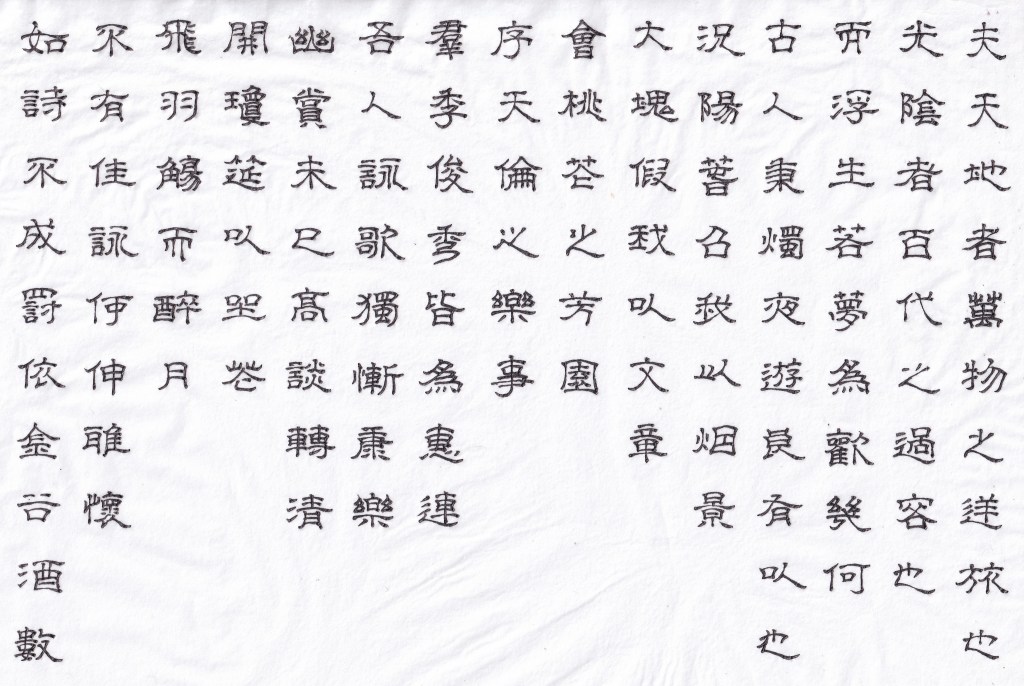 夫天地者萬物之逆旅也
光陰者百代之過客也
而浮生若夢為歡幾何
古人秉燭夜遊良有以也
況陽春召我以烟景
大塊假我以文章
會桃花之芳園
序天倫之樂事
羣季俊秀皆為惠連
吾人詠歌獨慚康樂
幽賞未已高談轉清
開瓊筵以坐花
飛羽觴而醉月
不有佳詠何伸雅懷
如詩不成罰依金谷酒數